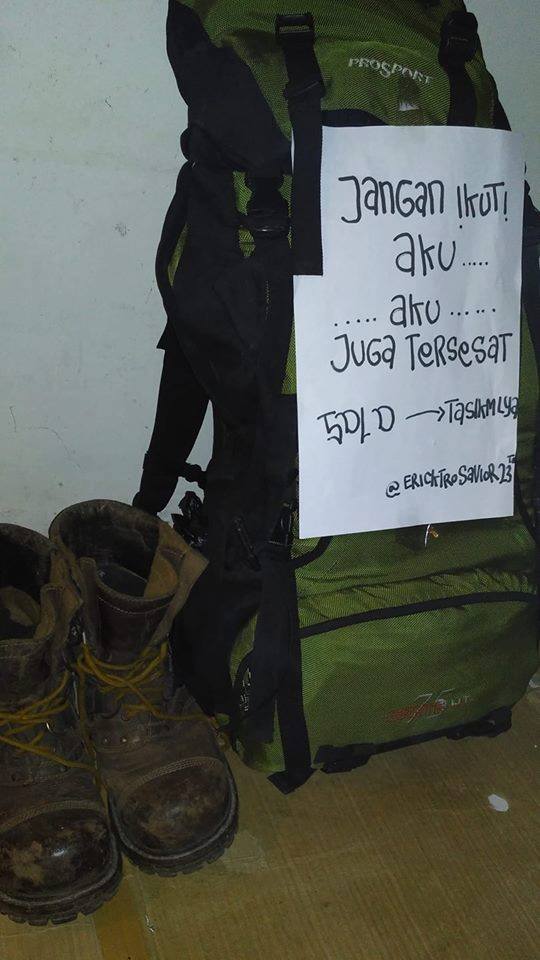 PROSPORT
JANGAN IKUTI
AKU .....
..... AKU ......
JUGA TERSESAT
SOLO → TASIKMLYA
@ERICKTROSAVIOR23TH
75